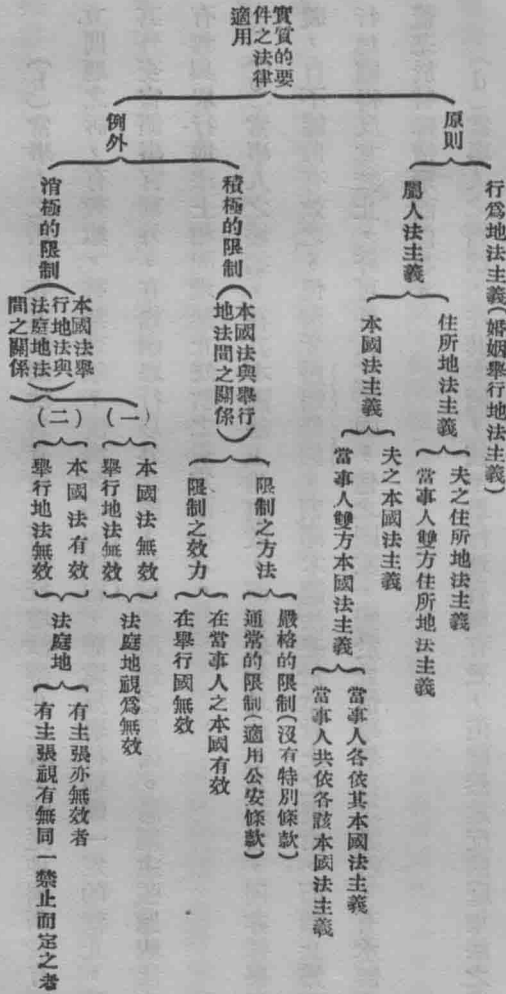 實質的要
件之法律
適用
原則
行爲地法主義(婚姻舉行地法主義)
屬人法主義
住所地法主義
夫之住所地法主義
當事人雙方住所地法主義
本國法主義
夫之本國法主義
當事人雙方本國法主義
當事人各依其本國法主義
當事人共依各該本國法主義
例外
積極的限制
(本國法與舉行
地法間之關係)
限制之方法
嚴格的限制(沒有特別條款)
通常的限制(適用公安條款)
限制之效力
在當事人之本國有效
在舉行國無效
消極的限制
(本國法舉
行地法與
法庭地法
間之關係)
(一)
本國法無效
舉行地法無效
法庭地視爲無效
(二)
本國法有效
舉行地法無效
法庭地
有主張亦無效者
有主張視有無同一禁止而定之者